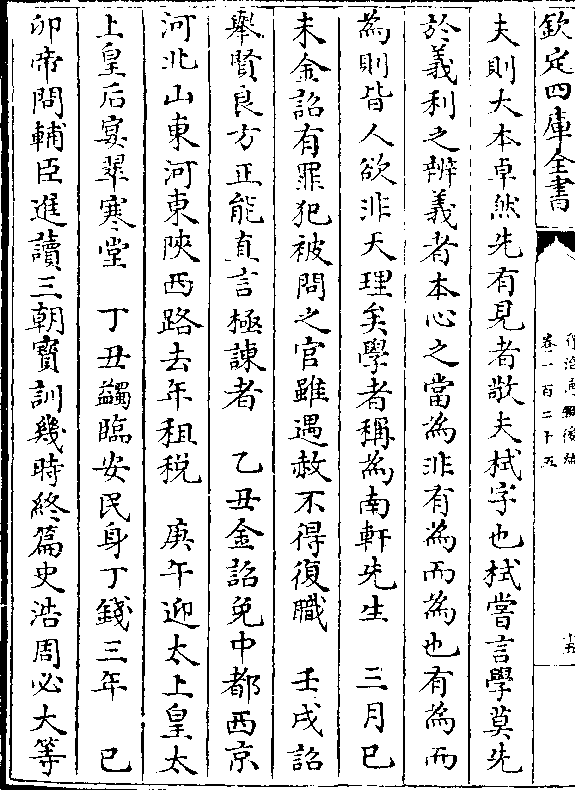 欽定四庫全書
卷一百二十五
夫則大本卓然先有見者敬夫栻字也栻嘗言學莫先
於義利之辨義者本心之當為非有為而為也有為而
為則皆人欲非天理矣學者稱為南軒先生　三月巳
未金詔有罪犯被問之官雖遇赦不得復職　壬戌詔
舉賢良方正能直言極諫者　乙丑金詔免中都西京
河北山東河東陜西路去年租税　庚午迎太上皇太
上皇后宴翠寒堂　丁丑蠲臨安民身丁錢三年　巳
卯帝問輔臣進讀三朝寶訓幾時終篇史浩周必大等